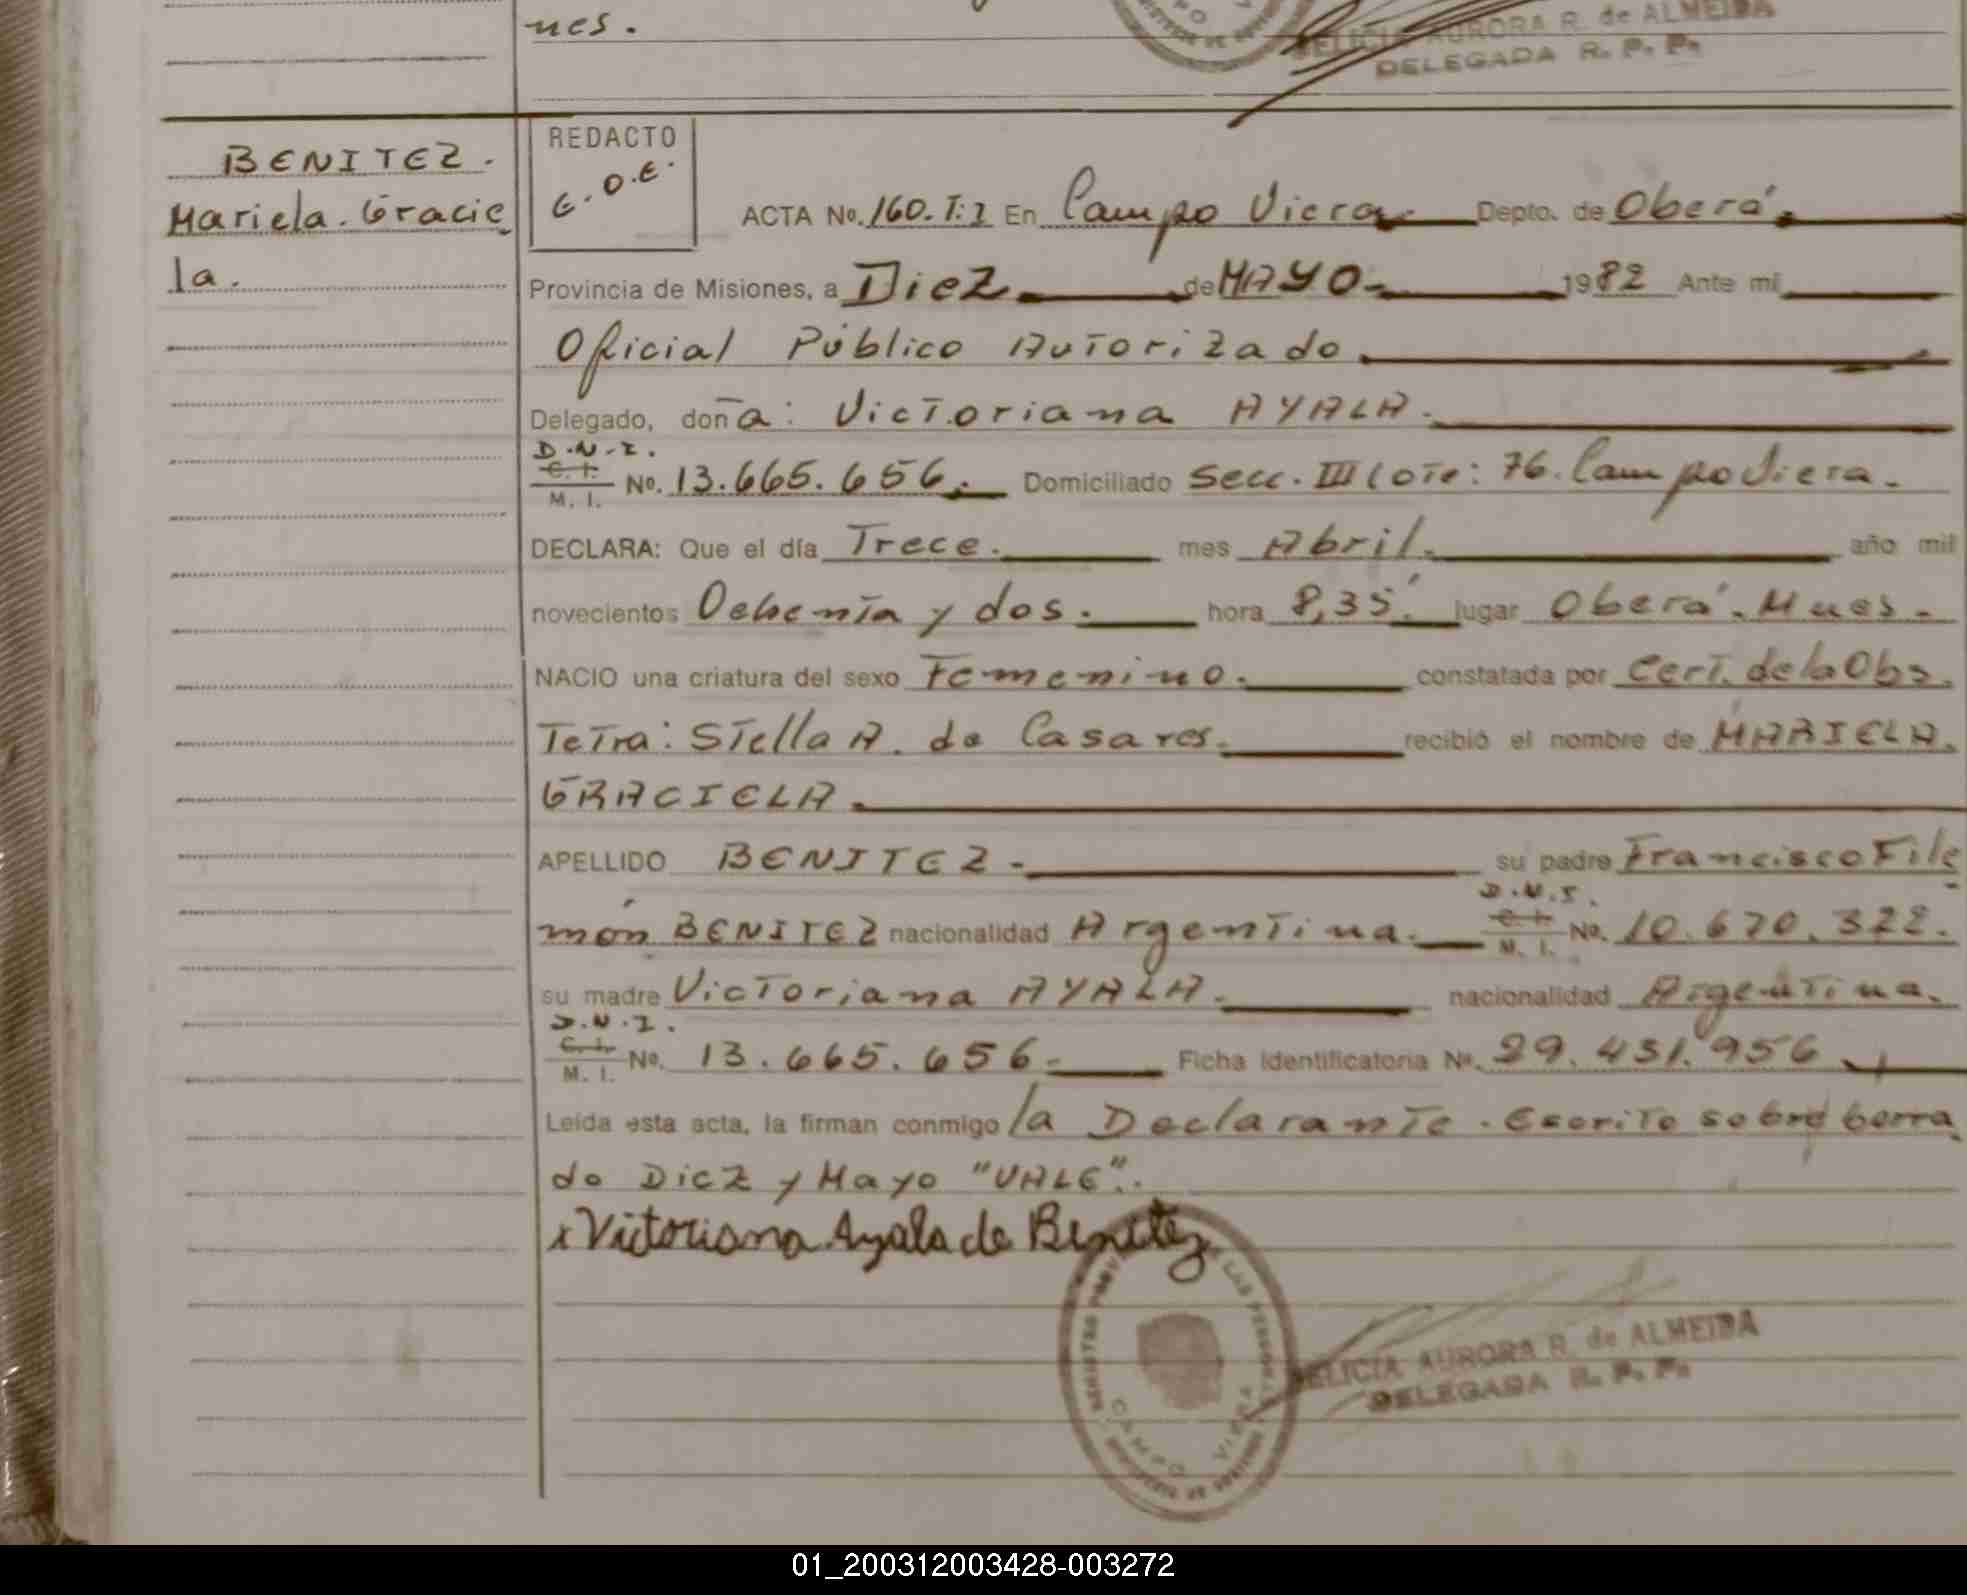 nes.
FELICIA AURORA R. de ALMEIDA
DELEGADA R. P. P.
BENITEZ.
Mariela. Gracie
la.
REDACTO
E.O.E.
ACTA No. 160. T: I En Campo Viera Depto. de Oberá.
Provincia de Misiones, a Diez de MAYO 1982 Ante mi
Oficial Público Autorizado
Delegado, doña: Victoriana AYALA.
D.N.I.
C. I.
M. I. No. 13.665.656. Domiciliado Secc. III Lote: 76. Campo Viera.
DECLARA: Que el día Trece. mes Abril. año mil
novecientos Ochenta y dos. hora 8,35'. lugar Oberá. Mnes.
NACIO una criatura del sexo Femenino. constatada por Cert. de la Obs
tetra: Stella A. de Casares. recibió el nombre de MARIELA.
GRACIELA.
APELLIDO BENITEZ. su padre Francisco File
món BENITEZ nacionalidad Argentina. D.N.I. C. I. M. I. No. 10.670.322.
su madre Victoriana AYALA. nacionalidad Argentina.
D.N.I.
C. I.
M. I. No. 13.665.656. Ficha Identificatoria No. 29.431.956
Leída esta acta, la firman conmigo la Declarante. Escrito sobre borra
do Diez y Mayo "VALE".
x Victoriana Ayala de Benitez
CAMPO VIERA
FELICIA AURORA R. de ALMEIDA
DELEGADA R. P. P.
01_200312003428-003272